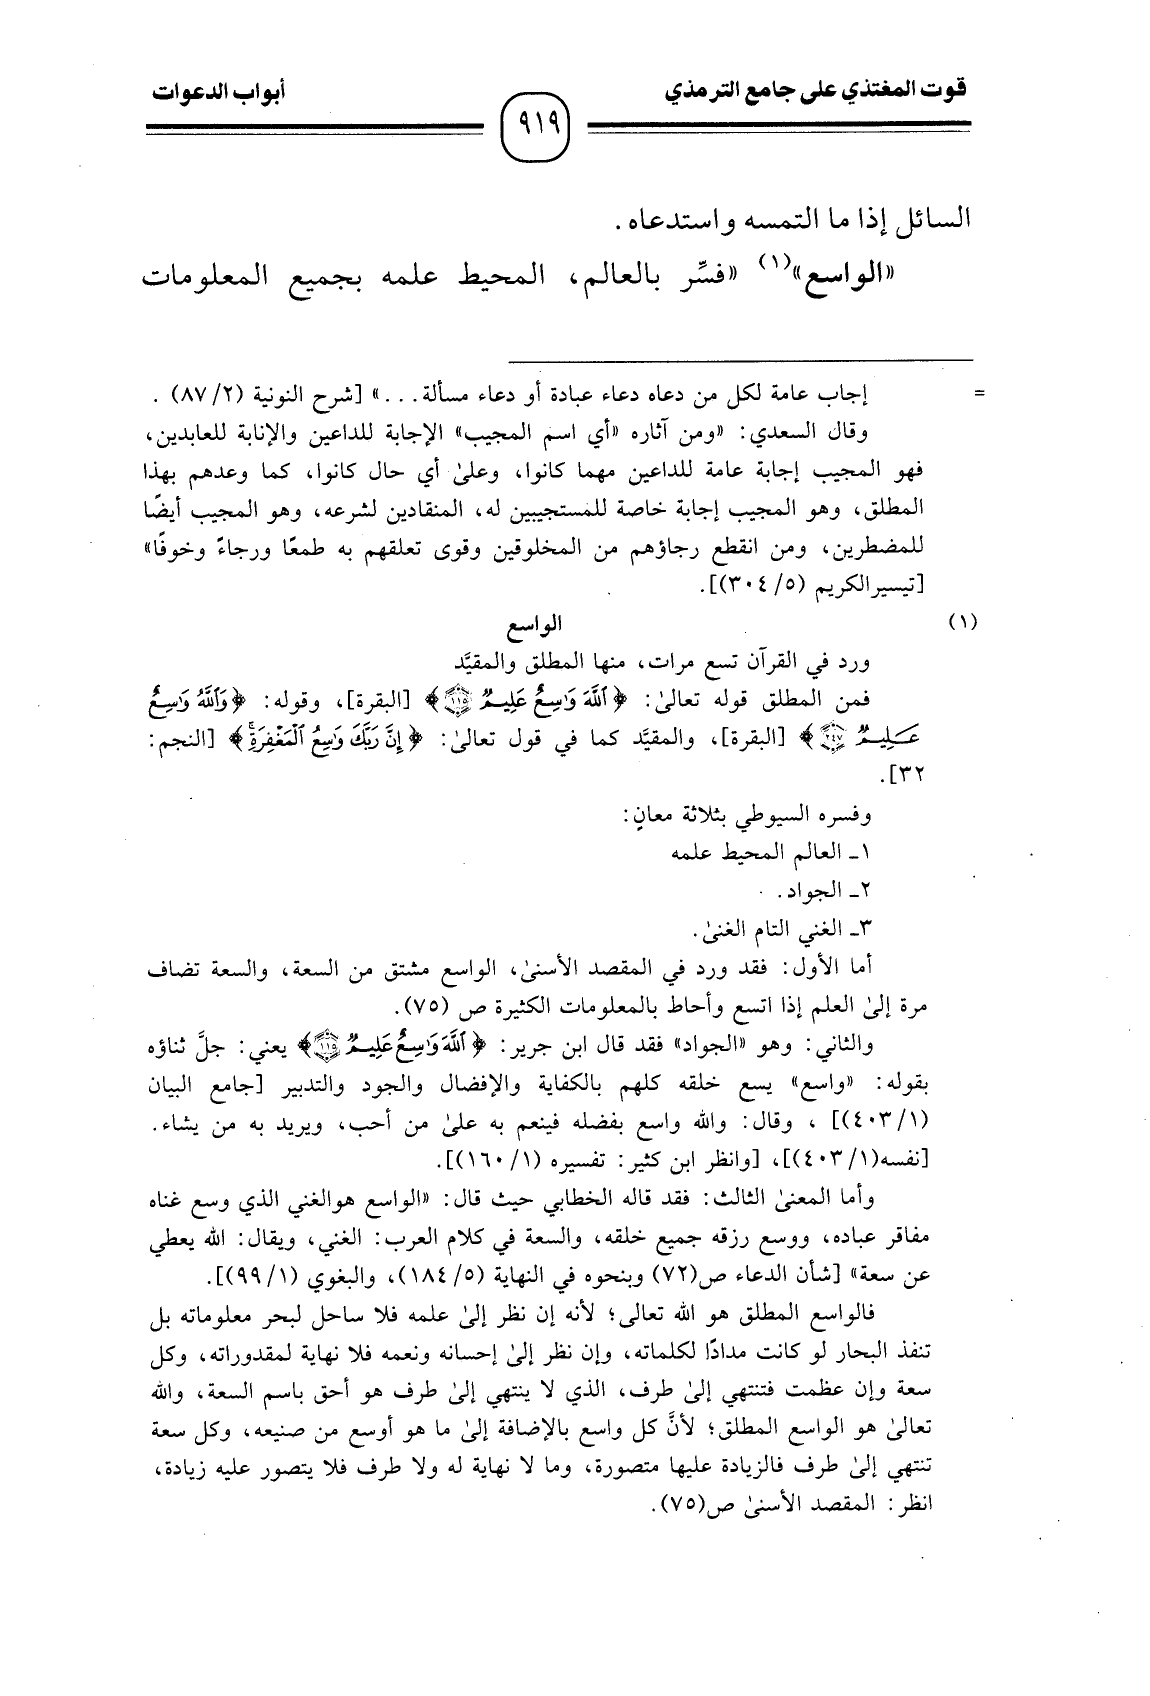 قوت المغتذي على جامع الترمذي
٩١٩
أبواب الدعوات
السائل إذا ما التمسه واستدعاه.
«الواسع»(١) «فسِّر بالعالم، المحيط علمه بجميع المعلومات
= إجاب عامة لكل من دعاه دعاء عبادة أو دعاء مسألة...» [شرح النونية (٨٧/٢) .
وقال السعدي: «ومن آثاره «أي اسم المجيب» الإجابة للداعين والإنابة للعابدين،
فهو المجيب إجابة عامة للداعين مهما كانوا، وعلىٰ أي حال كانوا، كما وعدهم بهذا
المطلق، وهو المجيب إجابة خاصة للمستجيبين له، المنقادين لشرعه، وهو المجيب أيضًا
للمضطرين، ومن انقطع رجاؤهم من المخلوقين وقوى تعلقهم به طمعًا ورجاءً وخوفًا»
[تيسيرالكريم (٣٠٤/٥)].
(١) الواسع
ورد في القرآن تسع مرات، منها المطلق والمقيَّد
فمن المطلق قوله تعالىٰ: ﴿ٱللَّهَ وَٰسِعٌ عَلِيمٌ ١١٥﴾ [البقرة]، وقوله: ﴿وَٱللَّهُ وَٰسِعٌ
عَلِيمٌ ٢٤٧﴾ [البقرة]، والمقيَّد كما في قول تعالىٰ: ﴿إِنَّ رَبَّكَ وَٰسِعُ ٱلْمَغْفِرَةِۚ﴾ [النجم:
٣٢].
وفسره السيوطي بثلاثة معانٍ:
١ـ العالم المحيط علمه
٢ـ الجواد.
٣ـ الغني التام الغنىٰ.
أما الأول: فقد ورد في المقصد الأسنىٰ، الواسع مشتق من السعة، والسعة تضاف
مرة إلىٰ العلم إذا اتسع وأحاط بالمعلومات الكثيرة ص (٧٥).
والثاني: وهو «الجواد» فقد قال ابن جرير: ﴿ٱللَّهَ وَٰسِعٌ عَلِيمٌ ١١٥﴾ يعني: جلَّ ثناؤه
بقوله: «واسع» يسع خلقه كلهم بالكفاية والإفضال والجود والتدبير [جامع البيان
(٤٠٣/١)] ، وقال: والله واسع بفضله فينعم به علىٰ من أحب، ويريد به من يشاء.
[نفسه(٤٠٣/١)]، [وانظر ابن كثير: تفسيره (١٦٠/١)].
وأما المعنىٰ الثالث: فقد قاله الخطابي حيث قال: «الواسع هوالغني الذي وسع غناه
مفاقر عباده، ووسع رزقه جميع خلقه، والسعة في كلام العرب: الغني، ويقال: الله يعطي
عن سعة» [شأن الدعاء ص(٧٢) وبنحوه في النهاية (١٨٤/٥)، والبغوي (٩٩/١)].
فالواسع المطلق هو الله تعالى؛ لأنه إن نظر إلىٰ علمه فلا ساحل لبحر معلوماته بل
تنفذ البحار لو كانت مدادًا لكلماته، وإن نظر إلىٰ إحسانه ونعمه فلا نهاية لمقدوراته، وكل
سعة وإن عظمت فتنتهي إلىٰ طرف، الذي لا ينتهي إلىٰ طرف هو أحق باسم السعة، والله
تعالىٰ هو الواسع المطلق؛ لأنَّ كل واسع بالإضافة إلىٰ ما هو أوسع من صنيعه، وكل سعة
تنتهي إلىٰ طرف فالزيادة عليها متصورة، وما لا نهاية له ولا طرف فلا يتصور عليه زيادة،
انظر: المقصد الأسنىٰ ص(٧٥).